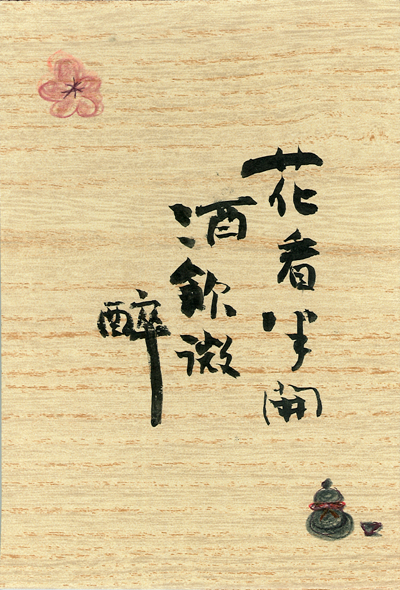 花看半開
酒飲微
醉